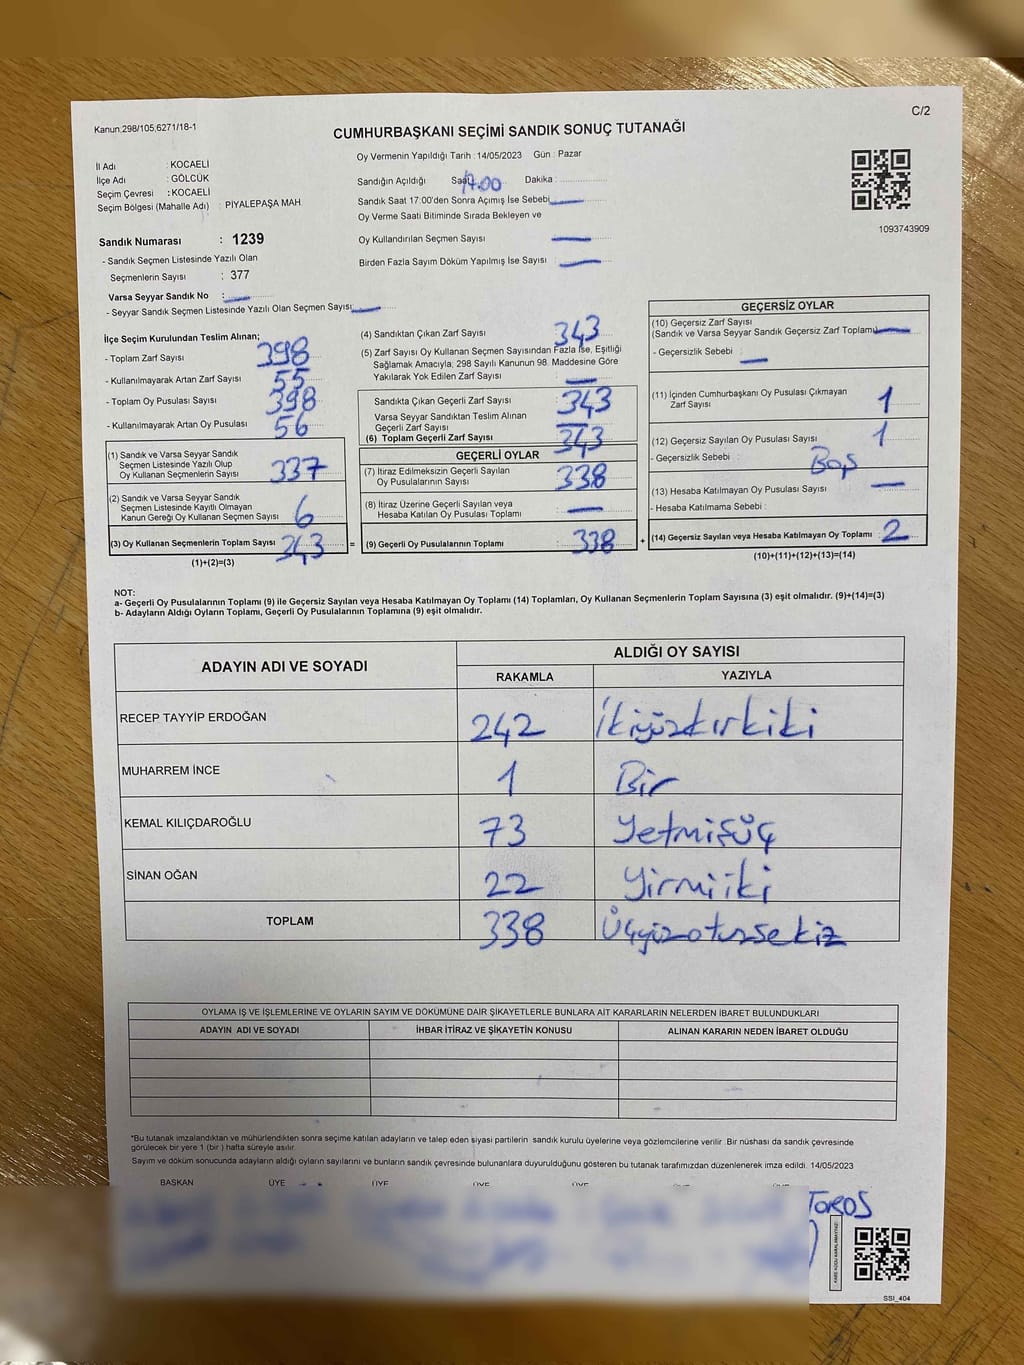 C/2
Kanun:298/105,6271/18-1
CUMHURBAŞKANI SEÇİMİ SANDIK SONUÇ TUTANAĞI
İl Adı : KOCAELİ
İlçe Adı : GÖLCÜK
Seçim Çevresi : KOCAELİ
Seçim Bölgesi (Mahalle Adı) : PİYALEPAŞA MAH
Oy Vermenin Yapıldığı Tarih : 14/05/2023 Gün : Pazar
Sandığın Açıldığı Saat 17.00 Dakika :
Sandık Saat 17:00'den Sonra Açımış İse Sebebi
Oy Verme Saati Bitiminde Sırada Bekleyen ve
Oy Kullandırılan Seçmen Sayısı
Birden Fazla Sayım Döküm Yapılmış İse Sayısı
1093743909
Sandık Numarası : 1239
- Sandık Seçmen Listesinde Yazılı Olan
Seçmenlerin Sayısı : 377
Varsa Seyyar Sandık No :
- Seyyar Sandık Seçmen Listesinde Yazılı Olan Seçmen Sayısı:
İlçe Seçim Kurulundan Teslim Alınan;
- Toplam Zarf Sayısı 398
- Kullanılmayarak Artan Zarf Sayısı 55
- Toplam Oy Pusulası Sayısı 398
- Kullanılmayarak Artan Oy Pusulası 56
(1) Sandık ve Varsa Seyyar Sandık
Seçmen Listesinde Yazılı Olup
Oy Kullanan Seçmenlerin Sayısı 337
(2) Sandık ve Varsa Seyyar Sandık
Seçmen Listesinde Kayıtlı Olmayan
Kanun Gereği Oy Kullanan Seçmen Sayısı 6
(3) Oy Kullanan Seçmenlerin Toplam Sayısı 343 =
(1)+(2)=(3)
(4) Sandıktan Çıkan Zarf Sayısı 343
(5) Zarf Sayısı Oy Kullanan Seçmen Sayısından Fazla İse, Eşitliği
Sağlamak Amacıyla, 298 Sayılı Kanunun 98. Maddesine Göre
Yakılarak Yok Edilen Zarf Sayısı
Sandıkta Çıkan Geçerli Zarf Sayısı 343
Varsa Seyyar Sandıktan Teslim Alınan
Geçerli Zarf Sayısı
(6) Toplam Geçerli Zarf Sayısı 343
GEÇERLİ OYLAR
(7) İtiraz Edilmeksizin Geçerli Sayılan
Oy Pusulalarının Sayısı 338
(8) İtiraz Üzerine Geçerli Sayılan veya
Hesaba Katılan Oy Pusulası Toplamı
(9) Geçerli Oy Pusulalarının Toplamı : 338 +
GEÇERSİZ OYLAR
(10) Geçersiz Zarf Sayısı
(Sandık ve Varsa Seyyar Sandık Geçersiz Zarf Toplamı)
- Geçersizlik Sebebi :
(11) İçinden Cumhurbaşkanı Oy Pusulası Çıkmayan
Zarf Sayısı 1
(12) Geçersiz Sayılan Oy Pusulası Sayısı 1
- Geçersizlik Sebebi : Boş
(13) Hesaba Katılmayan Oy Pusulası Sayısı
- Hesaba Katılmama Sebebi :
(14) Geçersiz Sayılan veya Hesaba Katılmayan Oy Toplamı : 2
(10)+(11)+(12)+(13)=(14)
NOT:
a- Geçerli Oy Pusulalarının Toplamı (9) ile Geçersiz Sayılan veya Hesaba Katılmayan Oy Toplamı (14) Toplamları, Oy Kullanan Seçmenlerin Toplam Sayısına (3) eşit olmalıdır. (9)+(14)=(3)
b- Adayların Aldığı Oyların Toplamı, Geçerli Oy Pusulalarının Toplamına (9) eşit olmalıdır.
ADAYIN ADI VE SOYADI ALDIĞI OY SAYISI
RAKAMLA YAZIYLA
RECEP TAYYİP ERDOĞAN 242 İkiyüzkırkiki
MUHARREM İNCE 1 Bir
KEMAL KILIÇDAROĞLU 73 Yetmişüç
SİNAN OĞAN 22 Yirmiiki
TOPLAM 338 Üçyüzotuzsekiz
OYLAMA İŞ VE İŞLEMLERİNE VE OYLARIN SAYIM VE DÖKÜMÜNE DAİR ŞİKAYETLERLE BUNLARA AİT KARARLARIN NELERDEN İBARET BULUNDUKLARI
ADAYIN ADI VE SOYADI İHBAR İTİRAZ VE ŞİKAYETİN KONUSU ALINAN KARARIN NEDEN İBARET OLDUĞU
*Bu tutanak imzalandıktan ve mühürlendikten sonra seçime katılan adayların ve talep eden siyasi partilerin sandık kurulu üyelerine veya gözlemcilerine verilir. Bir nüshası da sandık çevresinde
görülecek bir yere 1 (bir ) hafta süreyle asılır.
Sayım ve döküm sonucunda adayların aldığı oyların sayılarını ve bunların sandık çevresinde bulunanlara duyurulduğunu gösteren bu tutanak tarafımızdan düzenlenerek imza edildi. 14/05/2023
BAŞKAN ÜYE ÜYE ÜYE ÜYE ÜYE
TOROS
KARE KODU KARALAMAYINIZ!
SSI_404